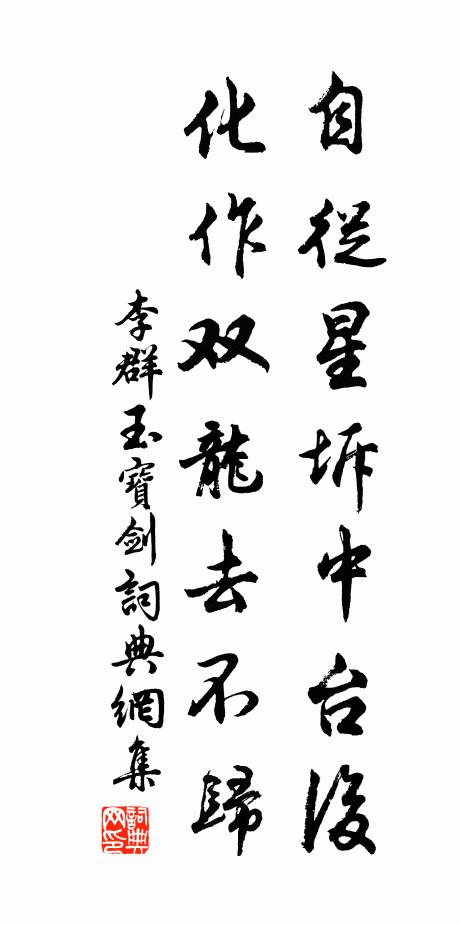 自從星坼中台後
化作双龍去不歸
李群玉寶劍詞典網集
詞典网印